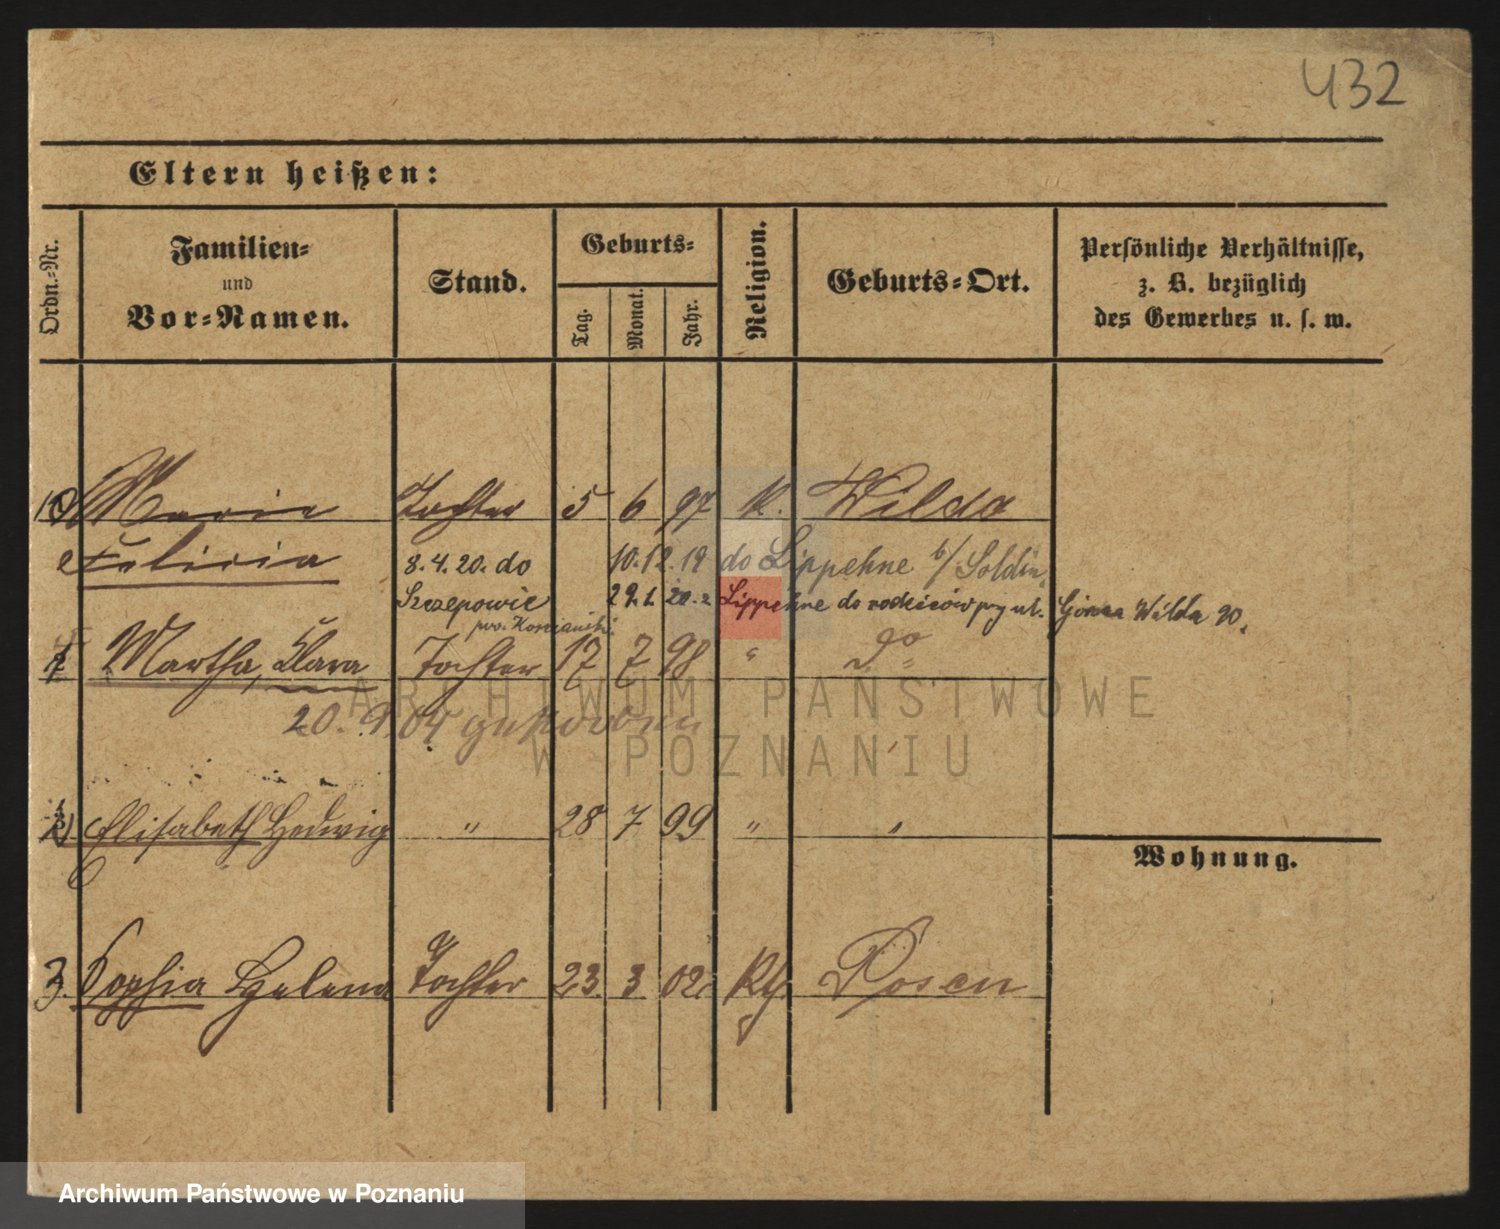 432
Eltern heißen:
Ordn.-Nr.
Familien-
und
Vor-Namen.
Stand.
Geburts-
Tag.
Monat.
Jahr.
Religion.
Geburts-Ort.
Persönliche Verhältnisse,
z. B. bezüglich
des Gewerbes u. s. w.
Marie Tochter 5 6 97 K. Wilda
Felicia 8.4.20. do 10.12.19 do Lippehne b/ Soldin
Szczepowic Lippehne do rodziców przy ul. Górna Wilda 90.
pow. Kościański
Martha, Clara Tochter 17 7 98 " do
20. 9. 04
ARCHIWUM PAŃSTWOWE
W POZNANIU
Elisabeth Hedwig " 28 7 99 " "
Wohnung.
3. Sophia Helena Tochter 23. 3 02. Kth. Posen
Archiwum Państwowe w Poznaniu